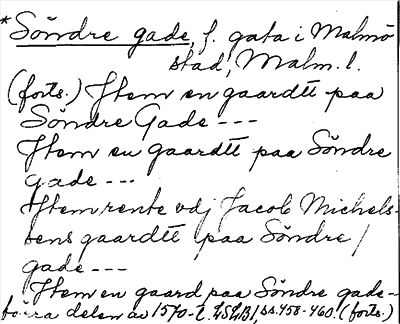 *Söndre gade, f. gata i Malmö
stad, Malm. l.
(forts.) Item en gaardtt paa
Söndre Gade ---
Item en gaardtt paa Söndre
gade ---
Item rente udj Jacob Michels-
sens gaardtt paa Söndre /
gade ---
Item en gaard paa Söndre gade-
förra delen av 1570-t. LSLB1, ss. 458-460. (forts.)